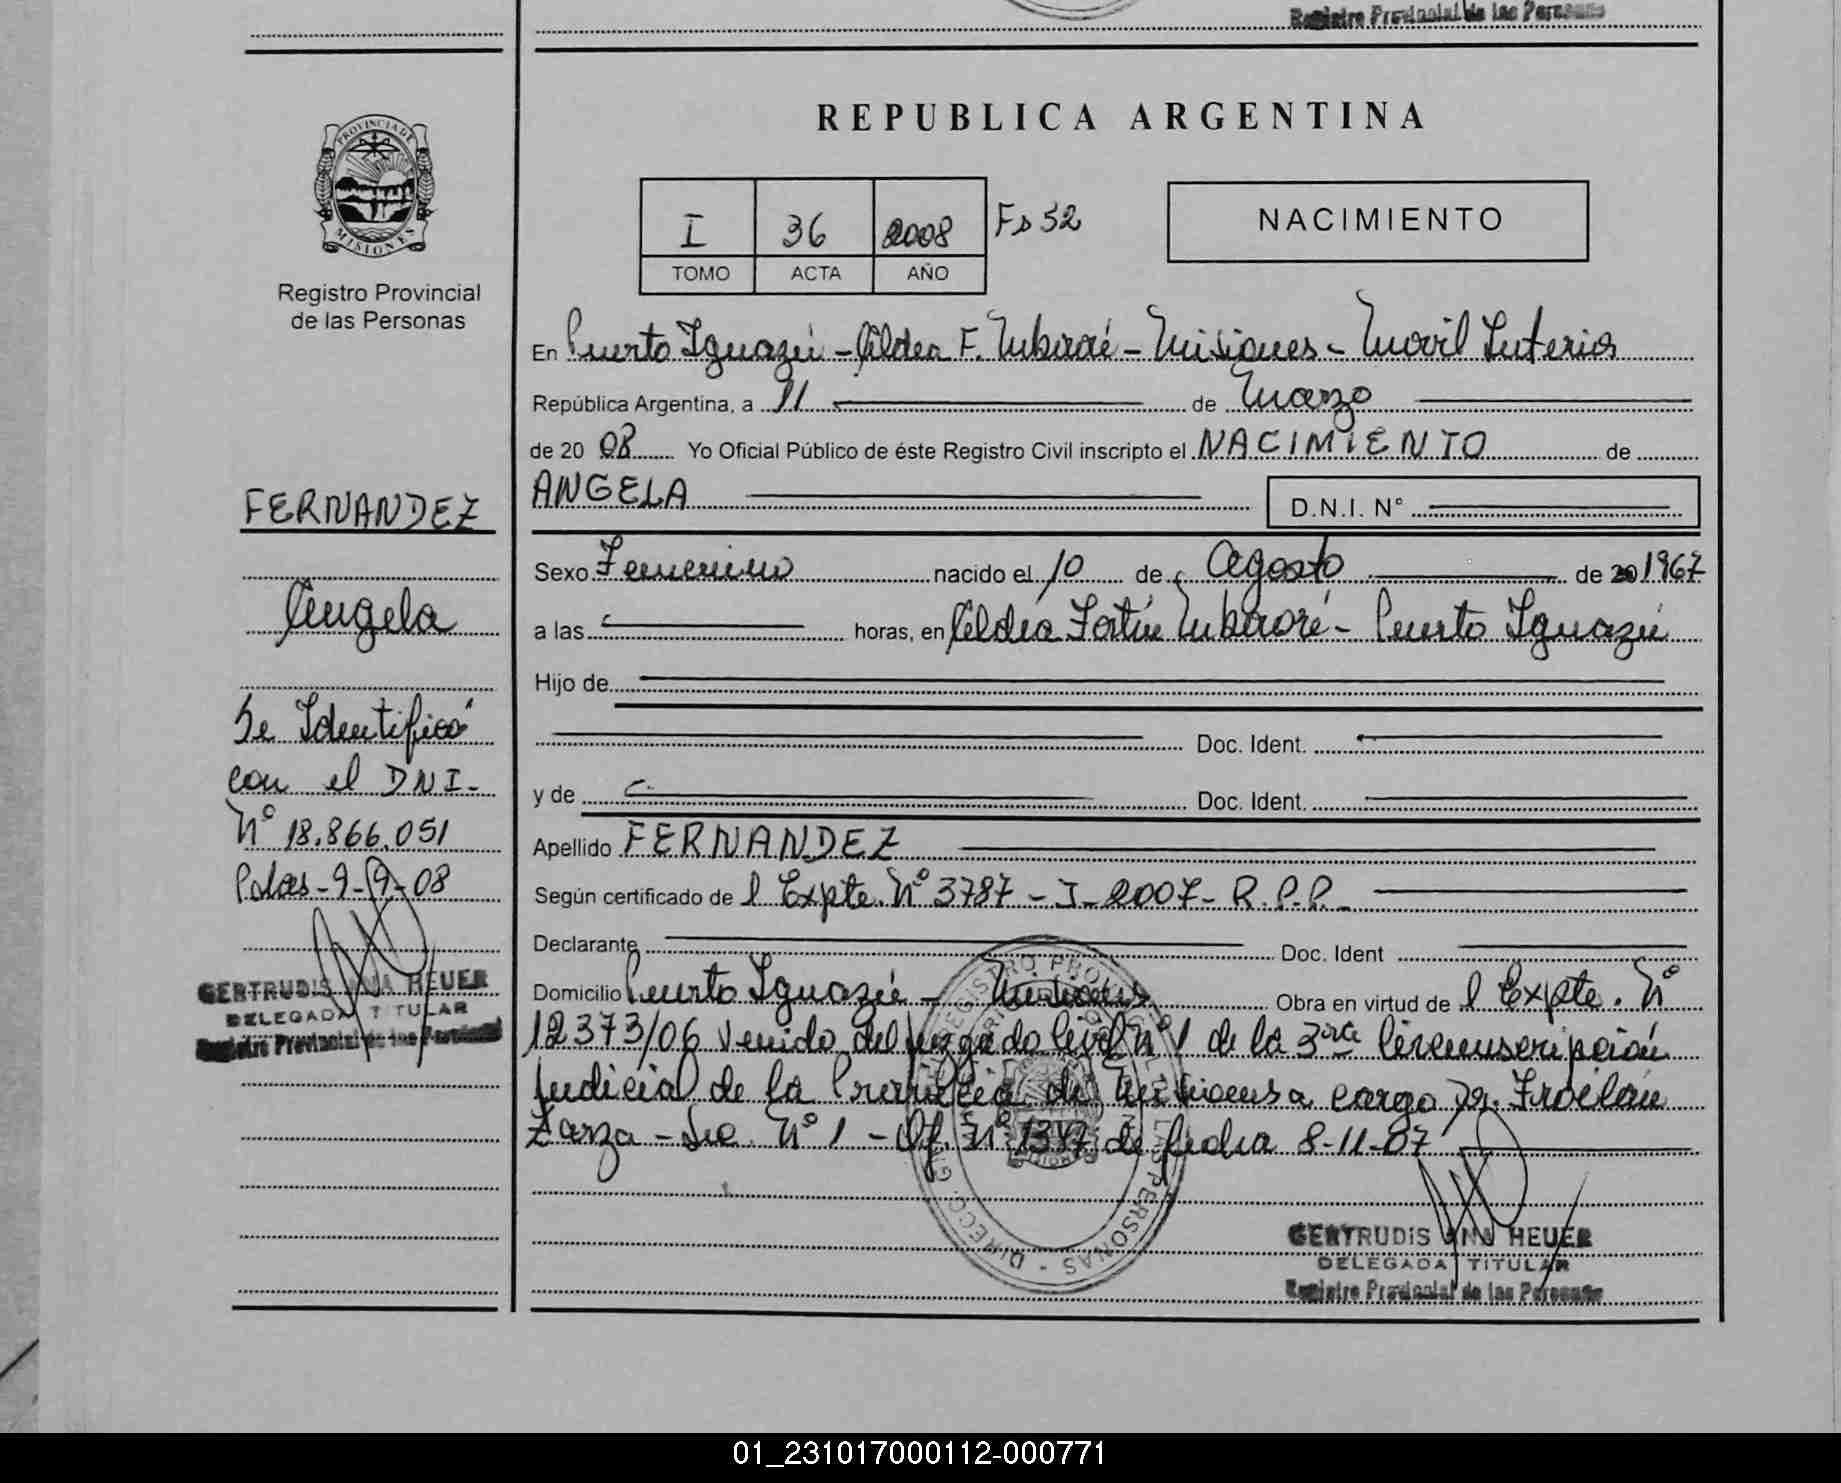 Registro Provincial de las Personas
REPUBLICA ARGENTINA
PROVINCIA DE
MISIONES
Registro Provincial
de las Personas
I 36 2008 Fº 52
TOMO ACTA AÑO
NACIMIENTO
En Puerto Iguazú - Aldea F. Mbororé - Misiones - Movil Interior
República Argentina, a 11 de Marzo
de 20 08 Yo Oficial Público de éste Registro Civil inscripto el NACIMIENTO de
ANGELA D.N.I. N°
FERNANDEZ
Sexo Femenino nacido el 10 de Agosto de 20 1967
Angela
a las horas, en Aldea Fortín Mbororé - Puerto Iguazú
Hijo de
Doc. Ident.
y de Doc. Ident.
Se Identificó
con el DNI-
Nº 18.866.051
Pdas-9-9-08
GERTRUDIS ANA HEUER
DELEGADA TITULAR
Registro Provincial de las Personas
Apellido FERNANDEZ
Según certificado de l Expte. Nº 3787 - I - 2007 - R.P.P.
Declarante Doc. Ident
Domicilio Puerto Iguazú - Misiones Obra en virtud de l Expte. Nº
12373/06 Venido del Juzgado Civil Nº 1 de la 3ra Circunscripción
Judicial de la Provincia de Misiones a cargo Dr. Froilán
Zarza - Sec. Nº 1 - Of. Nº 1387 de fecha 8-11-07
GERTRUDIS ANA HEUER
DELEGADA TITULAR
Registro Provincial de las Personas
01_231017000112-000771